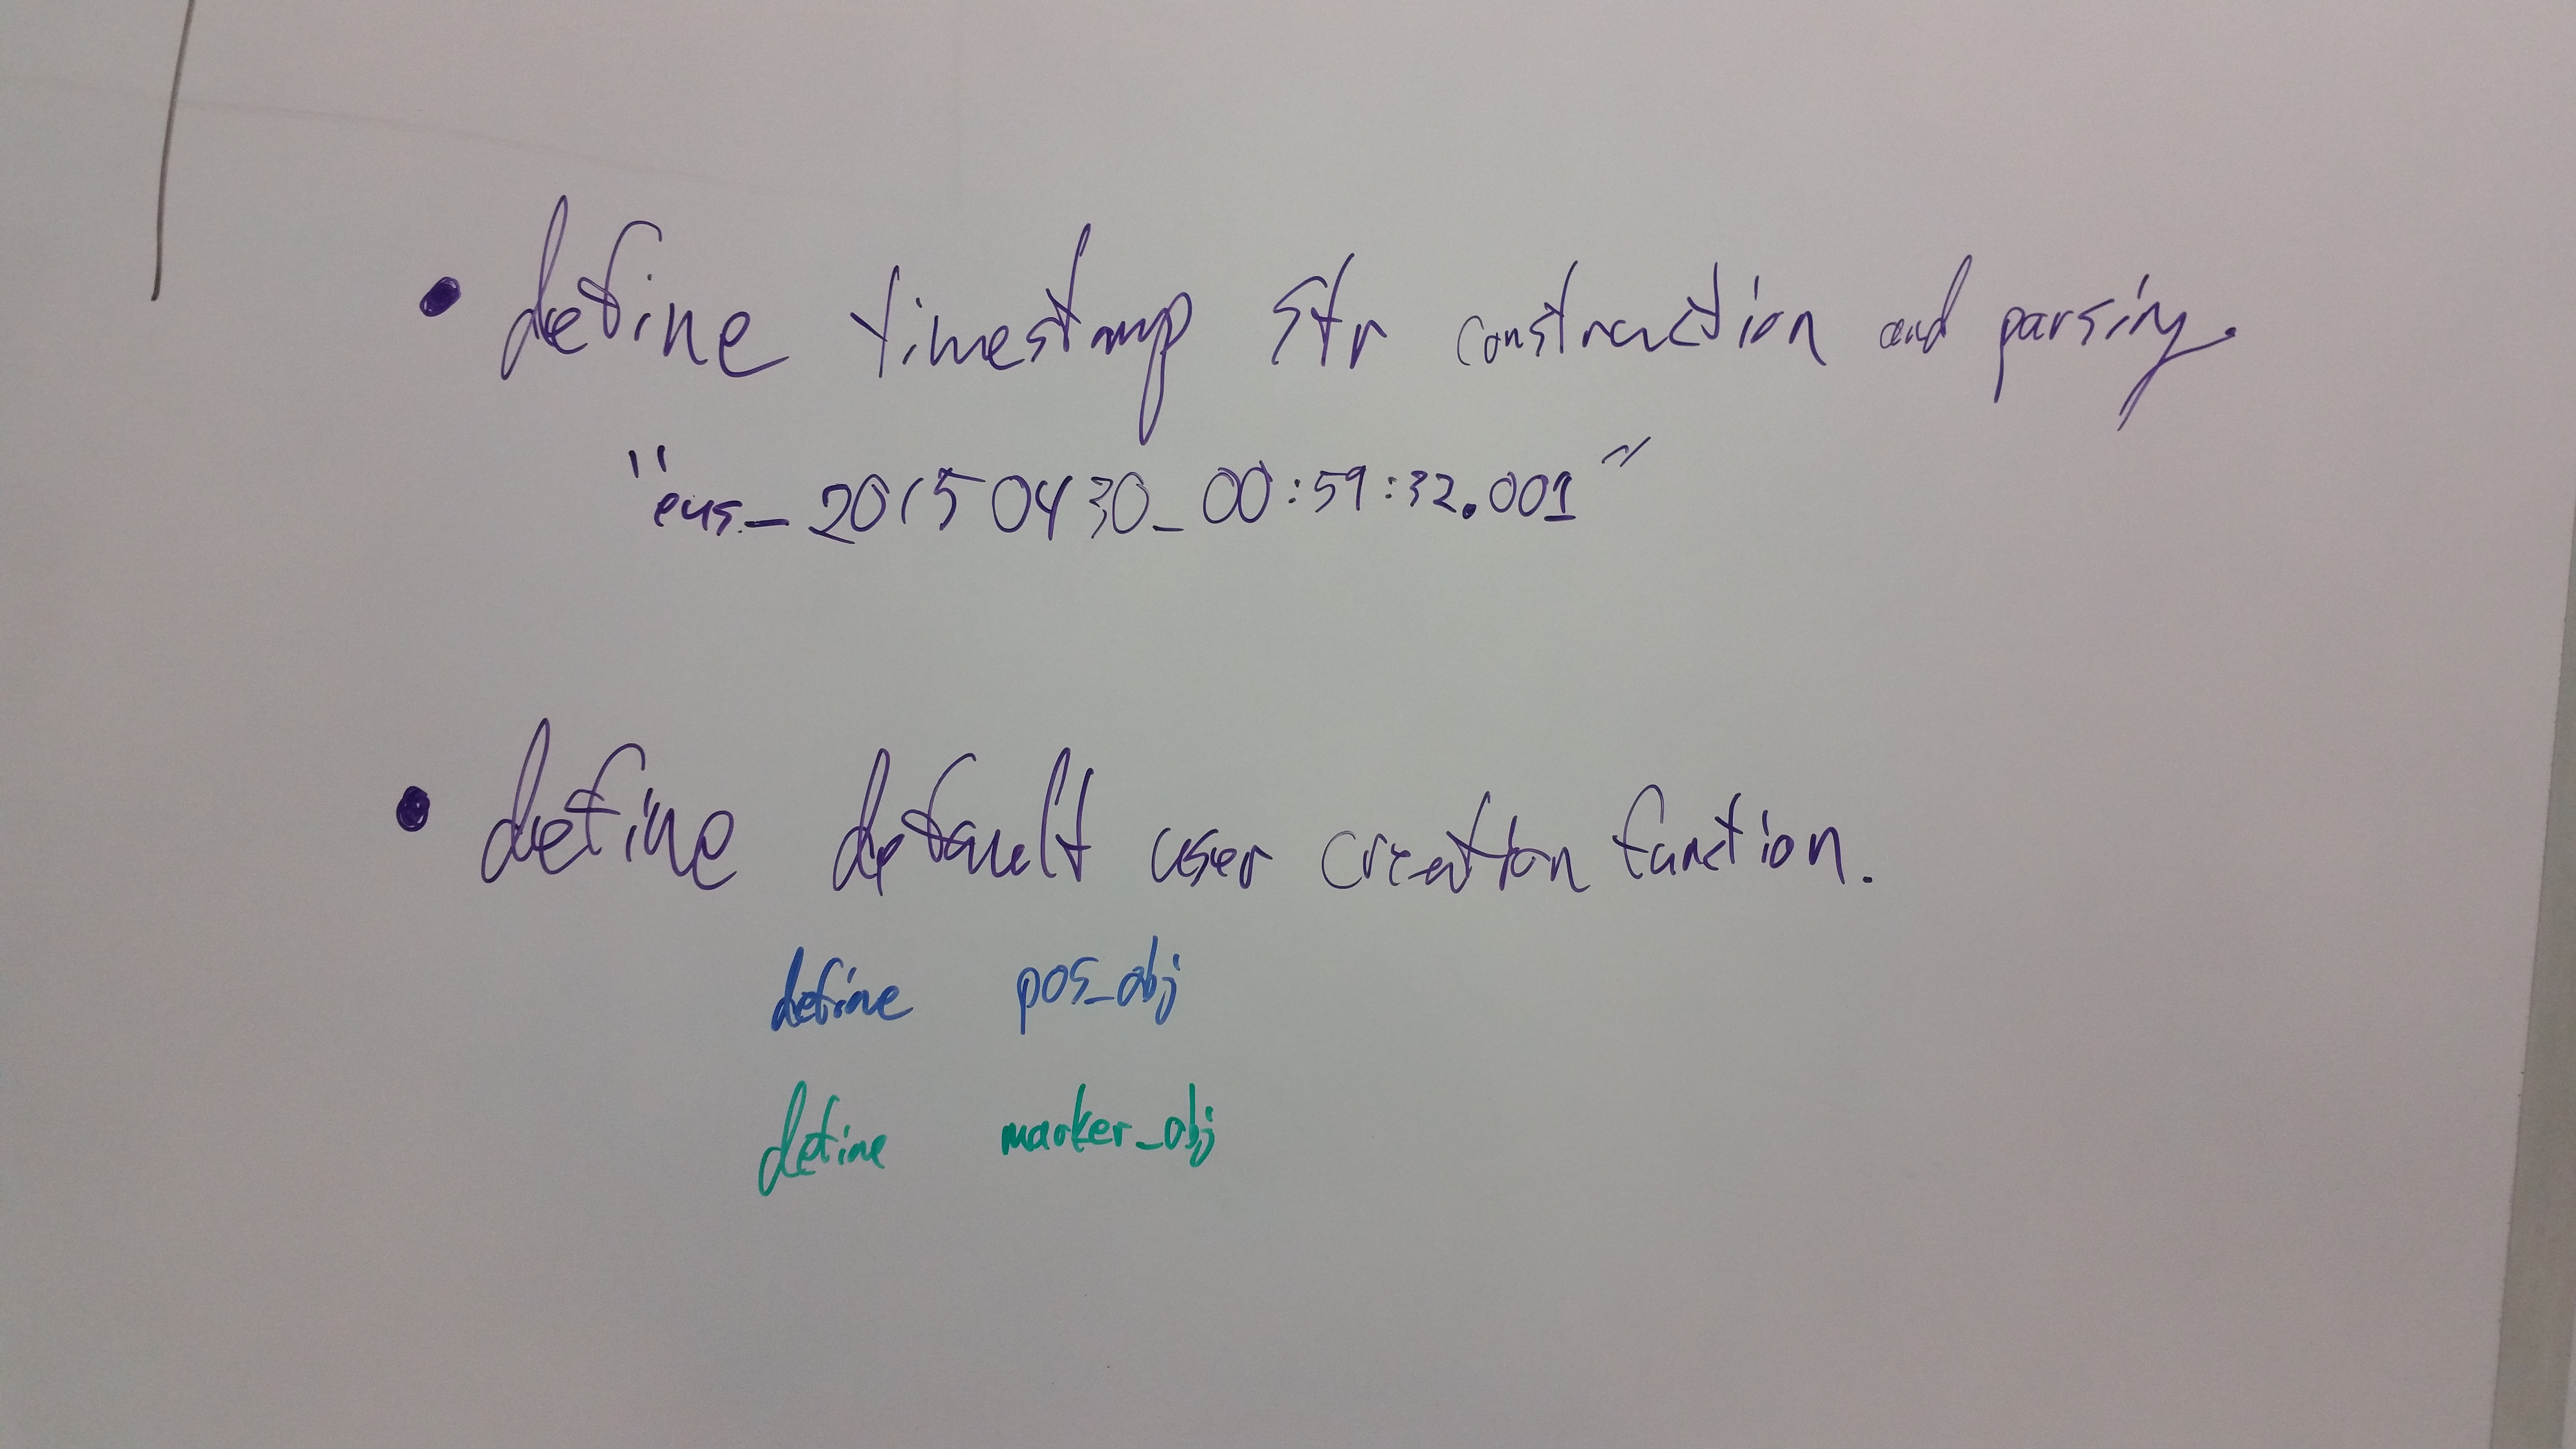 • define timestamp str construction and parsing.
"eus_20150430_00:59:32.001"
• define default user creation function.
define pos_obj
define marker_obj